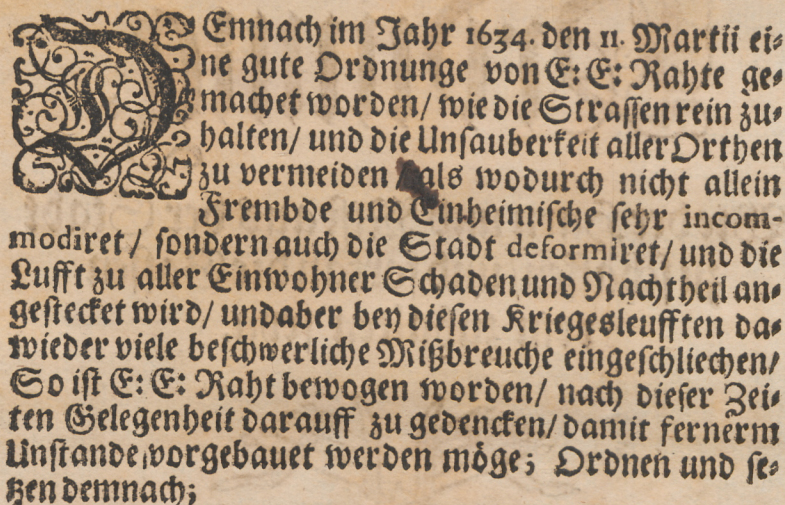 DEmnach im Jahr 1634. den 11. Martii ei⸗
ne gute Ordnunge von E: E: Rahte ge⸗
machet worden/ wie die Strassen rein zu⸗
halten/ und die Unsauberkeit aller Orthen
zu vermeiden als wodurch nicht allein
Frembde und Einheimische sehr incom-
modiret/ sondern auch die Stadt deformiret/ und die
Lufft zu aller Einwohner Schaden und Nachtheil an⸗
gestecket wird/ und aber bey diesen Kriegesleufften da⸗
wieder viele beschwerliche Mißbreuche eingeschliechen/
So ist E: E: Raht bewogen worden/ nach dieser Zei⸗
ten Gelegenheit darauff zu gedencken/ damit fernerm
Unstande, vorgebauet werden möge; Ordnen und se⸗
tzen demnach;